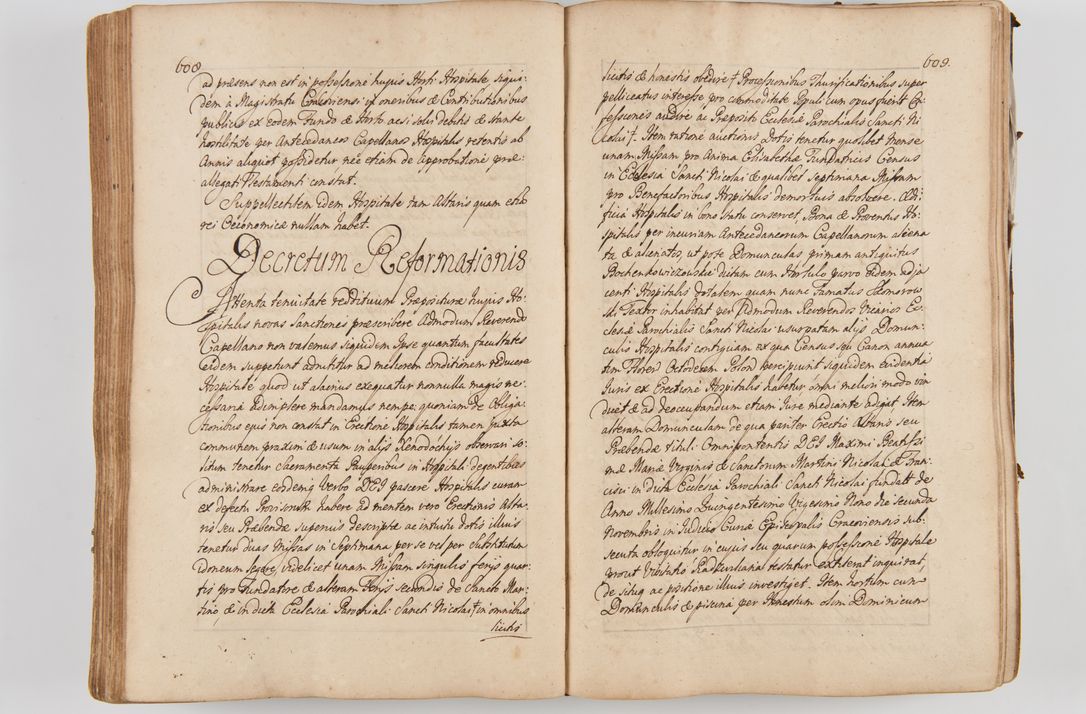 608
ad præsens non est in possessione hujus Horti Hospitale siqui-
dem à Magistratu Cracoviensi ex oneribus & Contributionibus
publicis ex eodem Fundo & Horto ac si solis debitis & stante
hostilitate per Antecedaneos Capellanos Hospitalis retentis ab
Annis aliquot possidetur nec etiam de Approbatione præ-
allegati Testamenti constat.
Suppellectilem idem Hospitale tam Altaris quam etiã
rei Oeconomicæ nullam habet.
Decretum Reformationis
Attenta tenuitate reddituum Præposituræ hujus Ho-
spitalis novas Sanctiones præscribere Admodum Reverendo
Capellano non valemus siquidem Ipse quantum facultates
eidem suppetunt adnititur ad meliorem conditionem reducere
Hospitale quod ut alacrius exequatur nonnulla magis ne-
cessaria adimplere mandamus nempe, quoniam de Obliga-
tionibus ejus non constat in Erectione Hospitalis tamen juxta
communem praxim & usum in alijs Xenodochijs observari so-
litum tenetur Sacramenta Pauperibus in Hospitali degentibus
administrare eosdemq Verbo DEI pascere Hospitalis curam
ex defectu Provisorum habere ad mentem vero Erectionis Alta-
ris seu Præbendæ superius descriptæ ac intuitu dotis illius
tenetur duas Missas in Septimana per se vel per substitutum
Idoneum legere, videlicet unam Missam singulis ferijs quar-
tis pro Fundatore & alteram Ferijs secundis de Sancto Mar-
tino, & in dicta Ecclesia Parochiali Sancti Nicolai in omnibus
licitis
609.
licitis & honestis obedire † Processionibus Thurificationibus super
pelliceatus interesse pro commoditate Populi cum opus fuerit Con
fessiones audire ac Præposito Ecclesiæ Parochialis Sancti Ni
colai †. Item ratione auctionis Dotis tenetur quolibet Mense
unam Missam pro Anima Elisabethæ Fundatricis Census
in Ecclesia Sancti Nicolai & qualibet septimana Missam
pro Benefactoribus Hospitalis demortuis absolvere. Ædi
ficia Hospitalis in bono statu conservet, Bona & Proventus Ho-
spitalis per incuriam Antecedaneorum Capellanorum aliena
ta & alienatos, ut pote Domunculas primam antiquitus
Bochenkowiczowska dictam cum Hortulo parvo eidem adja
centi Hospitalis dotalem quam nunc Famatus
Textor inhabitat per Admodum Reverendos Vicarios Ec-
clesiæ Parochialis Sancti Nicolai usurpatam alijs Domun-
culis Hospitalis contiguam ex qua Census seu Canon annua
tim Floren Octodecem Polon percipiunt siquidem evidentia
Juris ex Erectione Hospitalis habetur omni meliori modo vin
dicet & ad deoccupandum etiam Jure mediante adigat. Item
alteram Domunculam de qua pariter Erectio Altaris seu
Præbendæ tituli Omnipotentis DEI Maximi Beatissi
mæ Mariæ Virginis & Sanctorum Martini Nicolai & Fran-
cisci in dicta Ecclesia Parochiali Sancti Nicolai fundati de
Anno Millesimo Quingentesimo Vigesimo Nono die secunda
Novembris in Judicio Curiæ Episcopalis Cracoviensis sub-
secuta obloquitur in cujus seu quarum possessione Hospitale
prout Visitatio Radziviliana testatur extiterat inquirat,
de situq ac positione illius investiget. Item hortum cum
Domunculis & piscina per Honestum olim Dominicum